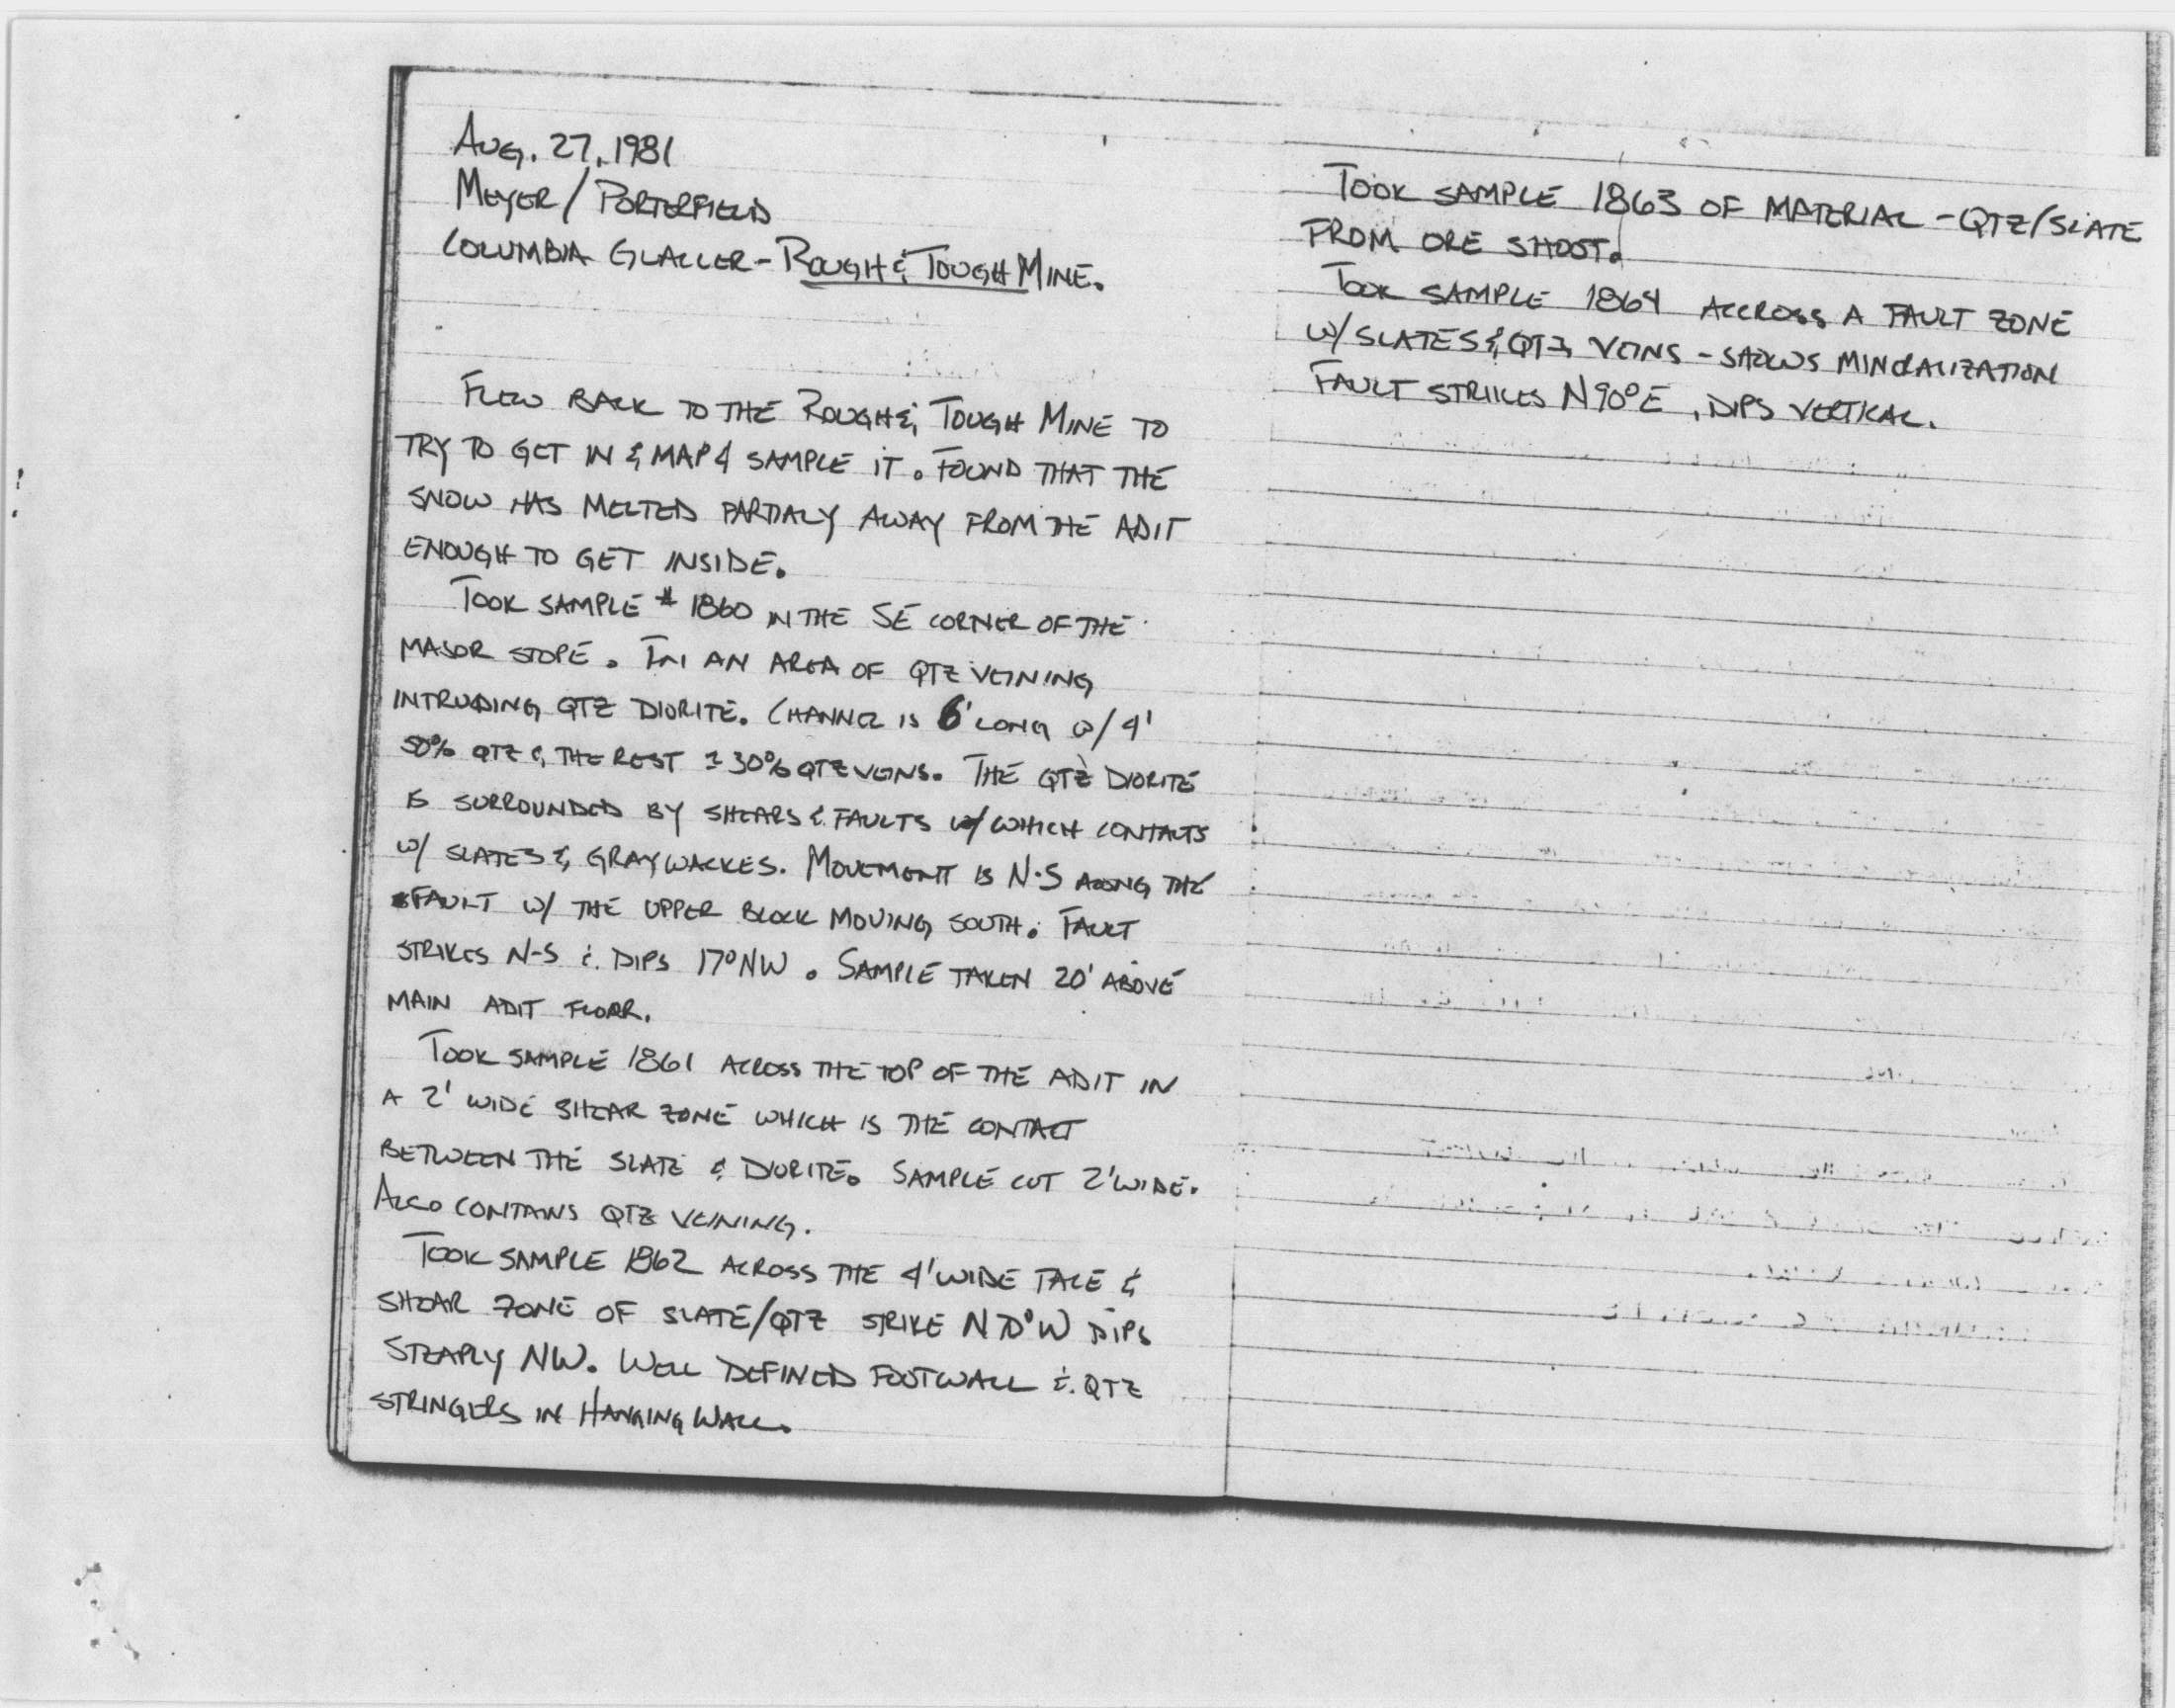 AUG. 27, 1981
MEYER / PORTERFIELD
COLUMBIA GLACIER - ROUGH & TOUGH MINE.
FLEW BACK TO THE ROUGH & TOUGH MINE TO
TRY TO GET IN & MAP & SAMPLE IT. FOUND THAT THE
SNOW HAS MELTED PARTIALY AWAY FROM THE ADIT
ENOUGH TO GET INSIDE.
TOOK SAMPLE # 1860 IN THE SE CORNER OF THE
MAJOR STOPE. IN AN AREA OF QTZ VEINING
INTRUDING QTZ DIORITE. CHANNEL IS 6' LONG W/ 4'
50% QTZ & THE REST ± 30% QTZ VEINS. THE QTZ DIORITE
IS SURROUNDED BY SHEARS & FAULTS W/ WHICH CONTACTS
W/ SLATES & GRAYWACKES. MOVEMENT IS N-S ALONG THE
FAULT W/ THE UPPER BLOCK MOVING SOUTH. FAULT
STRIKES N-S & DIPS 17° NW. SAMPLE TAKEN 20' ABOVE
MAIN ADIT FLOOR.
TOOK SAMPLE 1861 ACROSS THE TOP OF THE ADIT IN
A 2' WIDE SHEAR ZONE WHICH IS THE CONTACT
BETWEEN THE SLATE & DIORITE. SAMPLE CUT 2' WIDE.
ALSO CONTAINS QTZ VEINING.
TOOK SAMPLE 1862 ACROSS THE 4' WIDE FACE &
SHEAR ZONE OF SLATE/QTZ STRIKE N70°W DIPS
STEAPLY NW. WELL DEFINED FOOTWALL & QTZ
STRINGERS IN HANGING WALL.
TOOK SAMPLE 1863 OF MATERIAL - QTZ/SLATE
FROM ORE SHOOT.
TOOK SAMPLE 1864 ACCROSS A FAULT ZONE
W/ SLATES & QTZ VEINS - SHOWS MINERALIZATION
FAULT STRIKES N90°E, DIPS VERTICAL.